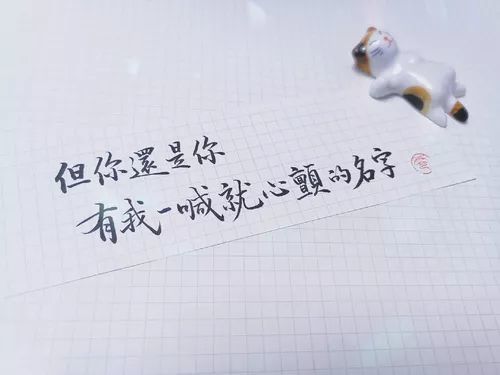 但你還是你
有我一喊就心顫的名字